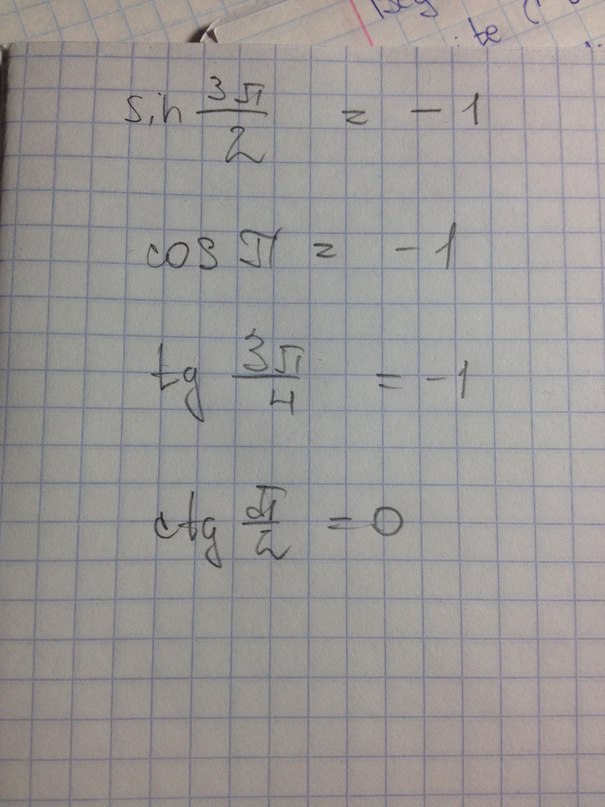 sin 3π/2 = -1
cos π = -1
tg 3π/4 = -1
ctg π/2 = 0